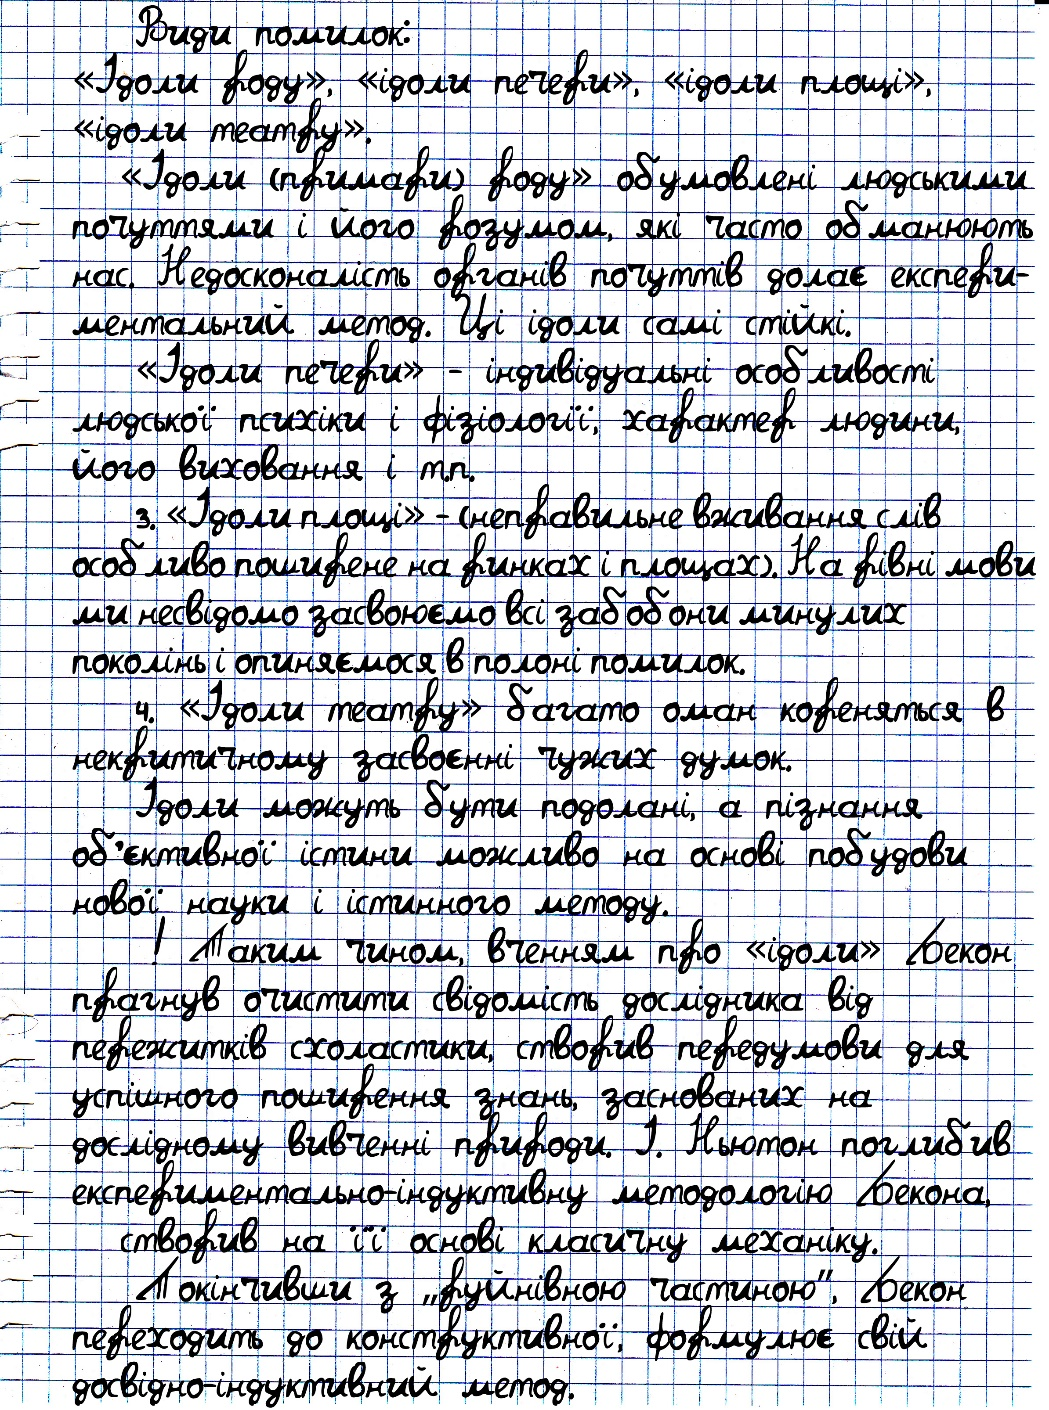 Види помилок:
«Ідоли роду», «ідоли печери», «ідоли площі»,
«ідоли театру».
«Ідоли (примари) роду» обумовлені людськими
почуттями і його розумом, які часто обманюють
нас. Недосконалість органів почуттів долає експери-
ментальний метод. Ці ідоли самі стійкі.
«Ідоли печери» - індивідуальні особливості
людської психіки і фізіології, характер людини,
його виховання і т.п.
3. «Ідоли площі» - (неправильне вживання слів
особливо поширене на ринках і площах). На рівні мови
ми несвідомо засвоюємо всі забобони минулих
поколінь і опиняємося в полоні помилок.
4. «Ідоли театру» багато оман кореняться в
некритичному засвоєнні чужих думок.
Ідоли можуть бути подолані, а пізнання
об'єктивної істини можливо на основі побудови
нової науки і істинного методу.
! Таким чином, вченням про «ідоли» Бекон
прагнув очистити свідомість дослідника від
пережитків схоластики, створив передумови для
успішного поширення знань, заснованих на
дослідному вивченні природи. І. Ньютон поглибив
експериментально-індуктивну методологію Бекона,
створив на її основі класичну механіку.
Покінчивши з „руйнівною частиною", Бекон
переходить до конструктивної, формулює свій
досвідно-індуктивний метод.